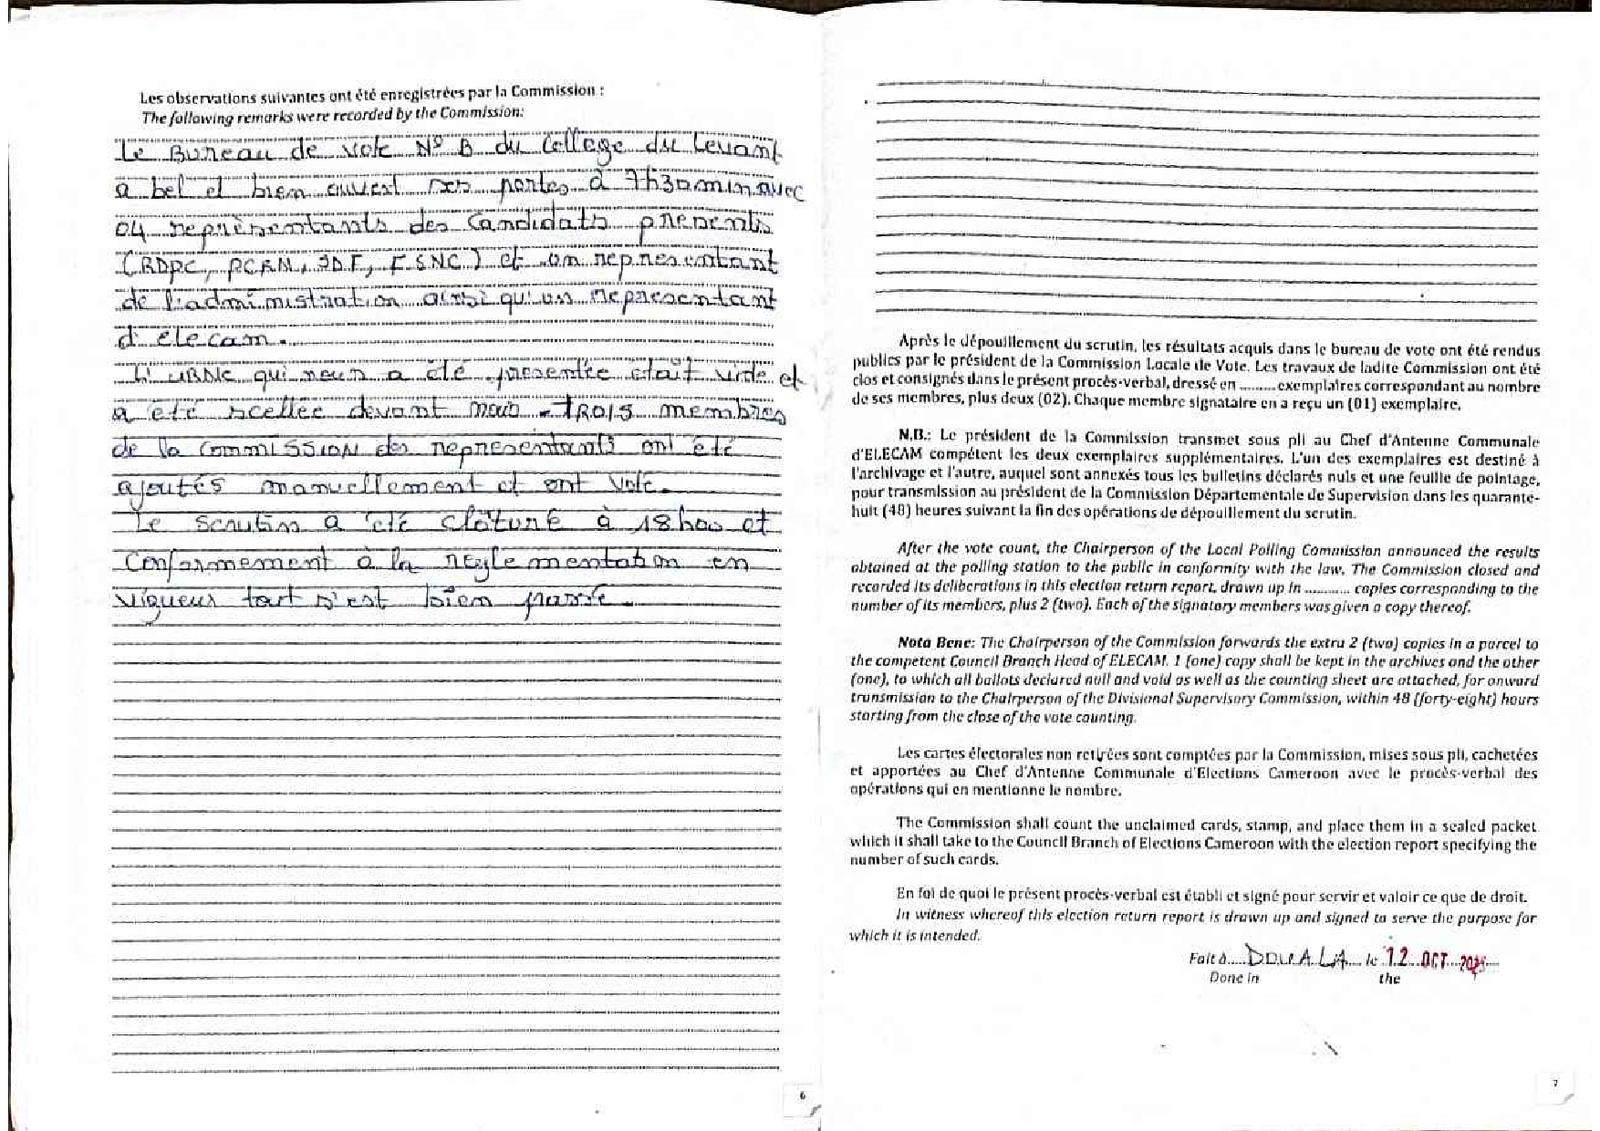 Les observations suivantes ont été enregistrées par la Commission :
The following remarks were recorded by the Commission:
Le Bureau de vote N° B du College du Levant
a bel et bien ouvert ses portes à 7h30min avec
04 représentants des Candidats présents
(RDPC, PCRN, SDF, FSNC) et un représentant
de l'administration ainsi qu'un représentant
d'elecam.
L'URNE qui nous a été présentée était vide et
a été scellée devant nous. TROIS membres
de la COMMISSION des représentants ont été
ajoutés manuellement et ont voté.
Le scrutin a été clôturé à 18h00 et
Conformement à la reglementation en
vigueur tout s'est bien passé.
6
Après le dépouillement du scrutin, les résultats acquis dans le bureau de vote ont été rendus
publics par le président de la Commission Locale de Vote. Les travaux de ladite Commission ont été
clos et consignés dans le présent procès-verbal, dressé en ......... exemplaires correspondant au nombre
de ses membres, plus deux (02). Chaque membre signataire en a reçu un (01) exemplaire.
N.B.: Le président de la Commission transmet sous pli au Chef d'Antenne Communale
d'ELECAM compétent les deux exemplaires supplémentaires. L'un des exemplaires est destiné à
l'archivage et l'autre, auquel sont annexés tous les bulletins déclarés nuls et une feuille de pointage,
pour transmission au président de la Commission Départementale de Supervision dans les quarante-
huit (48) heures suivant la fin des opérations de dépouillement du scrutin.
After the vote count, the Chairperson of the Local Polling Commission announced the results
obtained at the polling station to the public in conformity with the law. The Commission closed and
recorded its deliberations in this election return report, drawn up in ........... copies corresponding to the
number of its members, plus 2 (two). Each of the signatory members was given a copy thereof.
Nota Bene: The Chairperson of the Commission forwards the extra 2 (two) copies in a parcel to
the competent Council Branch Head of ELECAM. 1 (one) copy shall be kept in the archives and the other
(one), to which all ballots declared null and void as well as the counting sheet are attached, for onward
transmission to the Chairperson of the Divisional Supervisory Commission, within 48 (forty-eight) hours
starting from the close of the vote counting.
Les cartes électorales non retirées sont comptées par la Commission, mises sous pli, cachetées
et apportées au Chef d'Antenne Communale d'Elections Cameroon avec le procès-verbal des
opérations qui en mentionne le nombre.
The Commission shall count the unclaimed cards, stamp, and place them in a sealed packet
which it shall take to the Council Branch of Elections Cameroon with the election report specifying the
number of such cards.
En foi de quoi le présent procès-verbal est établi et signé pour servir et valoir ce que de droit.
In witness whereof this election return report is drawn up and signed to serve the purpose for
which it is intended.
Fait à.....DOUALA.... le 12 OCT 2025
Done in the
7